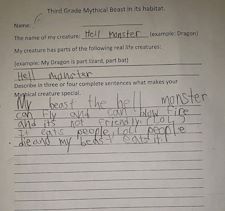 Third Grade Mythical Beast in its habitat.
Name:
The name of my creature: Hell monster (example: Dragon)
My creature has parts of the following real life creatures:
(example: My Dragon is part lizard, part bat)
Hell monster
Describe in three or four complete sentences what makes your
Mythical creature special.
My beast the hell monster
can fly and can blow fire
and its not friendly. (Lol)
It eats people. Lol people
die and my beast eats it!